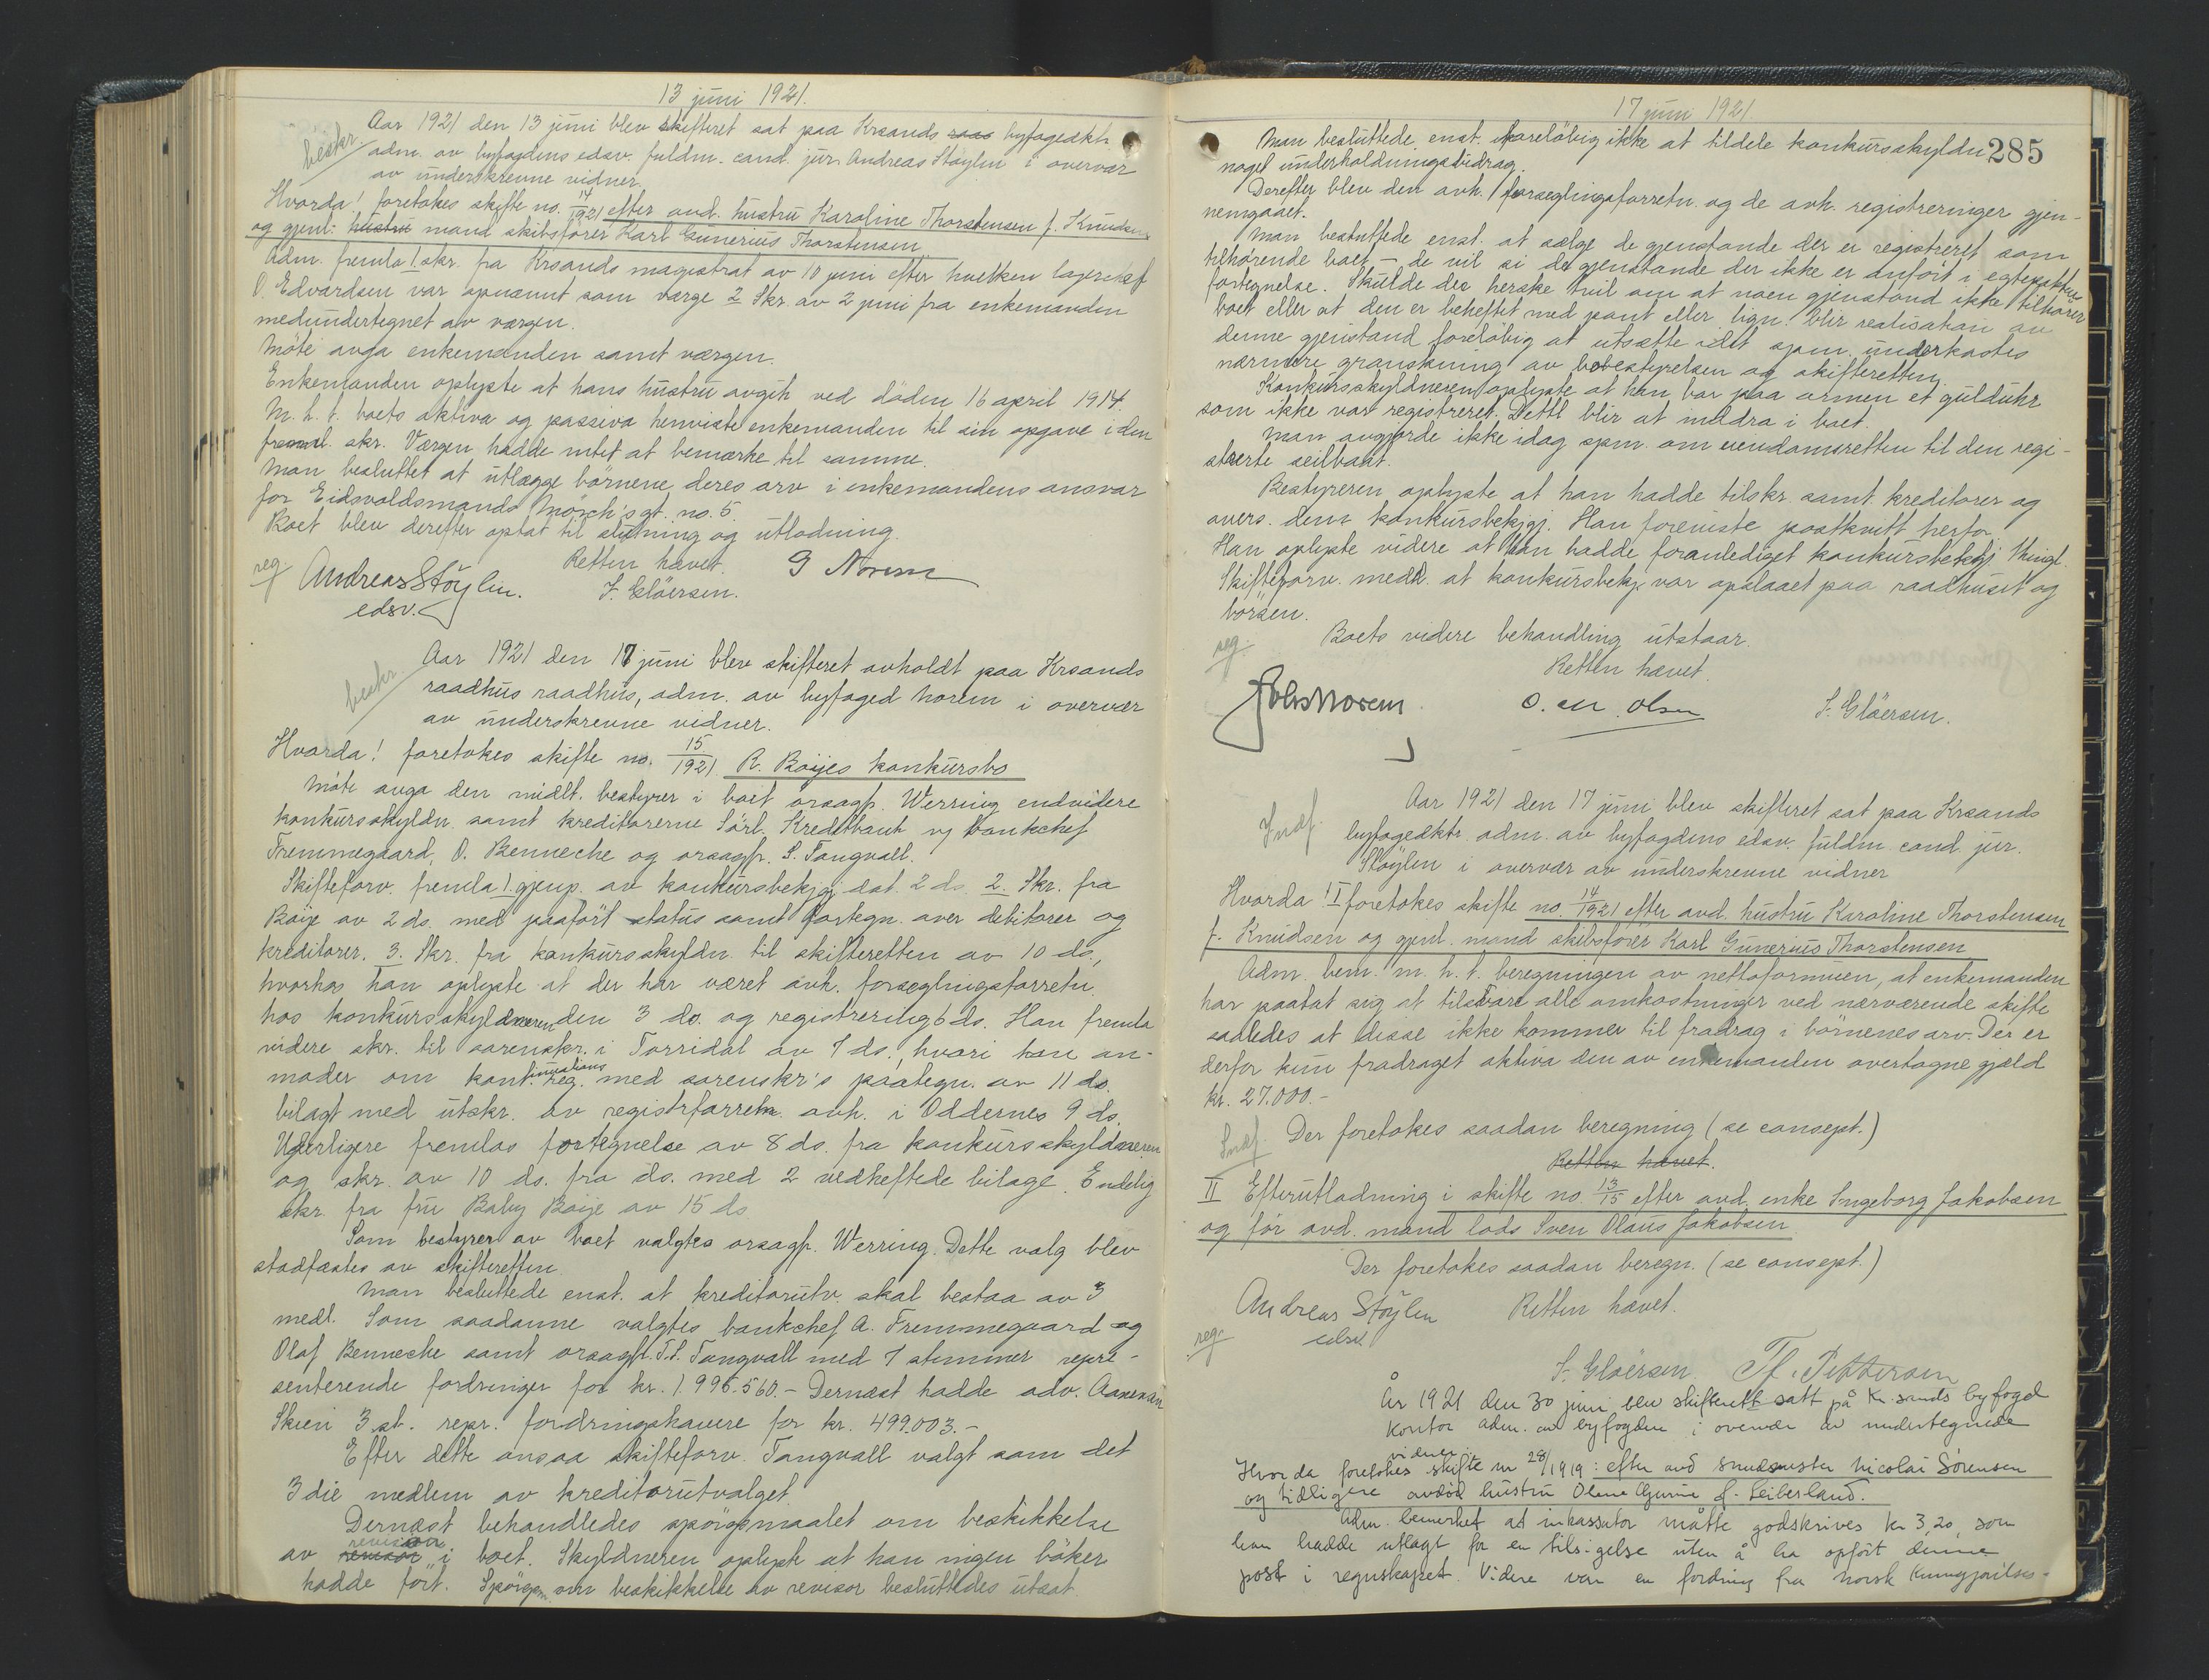 13 juni 1921.
beskr.
Aar 1921 den 13 juni blev skifteret sat paa Krsands raas byfogedktr.
adm. av byfogdens edsv. fuldm. cand. jur. Andreas Støylen i overvær
av underskrevne vidner.
Hvorda! foretokes skifte no. 14/1921 efter avd. hustru Karoline Thorstensen f. Knudsen
og gjenl: hustru mand skibsfører Karl Gunerius Thorstensen
Adm. fremla 1 skr. fra Krsands magistrat av 10 juni efter hvilken lagerchef
O. Edvardsen var opnævnt som værge 2 Skr. av 2 juni fra enkemanden
medundertegnet av værgen.
Møte avga enkemanden samt værgen.
Enkemanden oplyste at hans hustru avgik ved døden 16 april 1914.
M. h. t. boets aktiva og passiva henviste enkemanden til sin opgave i den
freml. skr. Værgen hadde intet at bemærke til samme.
Man besluttet at utlægge børnene deres arv i enkemandens ansvar
for Eidsvoldsmands Mørch's gt. no. 5.
Boet blev derefter optat til slutning og utlodning.
Retten hævet.
reg.
Andreas Støylen.
edsv.
S. Gløersen.
G Norem
beskr
Aar 1921 den 17 juni blev skifteret avholdt paa Krsands
raadhus raadhus, adm. av byfoged Norem i overvær
av underskrevne vidner.
Hvorda! foretokes skifte no. 15/1921 R. Boijes konkursbo
Møte avga den midlt. bestyrer i boet orsagf. Werring endvidere
konkursskyldn. samt kreditorerne Sørl. Kreditbank v/ bankchef
Fremmegaard, O. Benneche og orsagf. S. Tangvall.
Skifteforv. fremla 1. gjenp. av konkursbekjgj. dat. 2 ds. 2. Skr. fra
Boije av 2 ds. med paaført status samt fortegn. over debitorer og
kreditorer. 3. Skr. fra konkursskyldn. til skifteretten av 10 ds.,
hvorhos han oplyste at der har været avh. forseglingsforretn.
hos konkursskyldneren den 3 ds. og registrering 6 ds. Han fremla
videre skr. til sorenskr. i Torridal av 7 ds., hvori han an-
moder om kontinuations reg. med sorenskr's paategn. av 11 ds.
bilagt med utskr. av registrforretn. avh. i Oddernes 9 ds.
Yderligere fremlas fortegnelse av 8 ds. fra konkursskyldneren
og skr. av 10 ds. fra ds. med 2 vedheftede bilage. Endelig
skr. fra fru Baby Boije av 15 ds.
Som bestyrer av boet valgtes orsagf. Werring. Dette valg blev
stadfæstes av skifteretten.
Man besluttede enst. at kreditorutv. skal bestaa av 3
medl. Som saadanne valgtes bankchef A. Fremmegaard og
Olaf Benneche samt orsagf. T. S. Tangvall med 7 stemmer repre-
senterende fordringer for kr. 1.995.560.- Dernæst hadde adv. Aanensen
Skien 3 st. repr. fordringshavere for kr. 499.003.-
Efter dette ansaa skifteforv. Tangvall valgt som det
3die medlem av kreditorutvalget.
Dernæst behandledes spørgsmaalet om beskikkelse
av revisor revisor i boet. Skyldneren oplyste at han ingen bøker
hadde ført. Spørgsm. om beskikkelse av revisor besluttedes utsat.
17 juni 1921.
285
Man besluttede enst. foreløbig ikke at tildele konkursskyldn.
noget underholdningsbidrag.
Derefter blev den avh. forseglingsforretn. og de avh. registreringer gjen-
nemgaaet.
Man besluttede enst. at sælge de gjenstande der er registreret som
tilhørende boet - de vil si de gjenstande der ikke er anført i egtepaktens
fortegnelse. Skulde der herske tvil om at noen gjenstand ikke tilhører
boet eller at den er beheftet med pant eller lign. blir realisation av
denne gjenstand foreløbig at utsætte idet spm. underkastes
nærmere granskning av bobestyrelsen og skifteretten.
Konkursskyldneren oplyste at han bar paa armen et gulduhr
som ikke var registreret. Dette blir at inddra i boet.
Man avgjorde ikke idag spm. om eiendomsretten til den regi-
strerte seilbaat.
Bestyreren oplyste at han hadde tilskr. samt. kreditorer og
overs. dem konkursbekjgj. Han foreviste postkvitt. herfor.
Han oplyste videre at han hadde foranlediget konkursbekjgj. thingl.
Skifteforv. medd. at konkursbekj. var opslaaet paa raadhuset og
børsen.
Boets videre behandling utstaar.
Retten hævet.
reg.
Johs Norem
O. M. Olsen
S. Gløersen.
Aar 1921 den 17 juni blev skifteret sat paa Krsands
byfogedktr. adm. av byfogdens edsv. fuldm. cand. jur.
Støylen i overvær av underskrevne vidner
Hvorda! I foretokes skifte no. 14/1921 efter avd. hustru Karoline Thorstensen
f. Knudsen og gjenl. mand skibsfører Karl Gunerius Thorstensen
Adm. bem. m. h. t. beregningen av nettoformuen, at enkemanden
har paatat sig at tilsvare alle omkostninger ved nærværende skifte
saaledes at disse ikke kommer til fradrag i børnenes arv. Der er
derfor kun fradraget aktiva den av enkemanden overtagne gjæld
kr. 27.000.-
Der foretokes saadan beregning (se consept.)
Retten hævet.
II Efterutlodning i skifte no. 13/15 efter avd. enke Ingeborg Jakobsen
og før avd. mand lods Sven Olaus Jakobsen
Der foretokes saadan beregn. (se consept.)
Retten hævet.
Andreas Støylen
edsv.
reg.
S. Gløersen. Th. Pettersen
År 1921 den 30 juni blev skifterett satt på Kr.sands byfogd
kontor adm. av byfogden i overvær av undertegnede
vidner.
Hvor da foretokes skifte nr 28/1919: efter avd Nicolai Sørensen
og tidligere avdød hustru Olene Gurine f. Leiberland.
Adm. bemerket at inkassator måtte godskrives kr 3,20, som
han hadde utlagt for en tilsigelse uten å ha opført denne
post i regnskapet. Videre var en fordring fra Norsk Kunngjørelses-